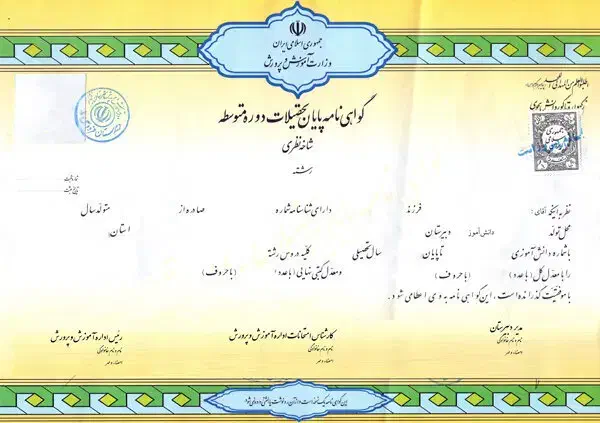 جمهوری اسلامی ایران
وزارت آموزش و پرورش
گواهی نامه پایان تحصیلات دوره متوسطه
شاخه نظری
رشته
شماره ثبت
تاریخ ثبت
نظر به اینکه آقای: فرزند دارای شناسنامه شماره صادره از متولد سال
محل تولد دانش آموز دبیرستان استان:
با شماره دانش آموزی تا پایان سال تحصیلی کلیه دروس رشته
را با معدل کل (با عدد) (با حروف) و معدل کتبی نهایی (با عدد) (با حروف)
با موفقیت گذرانده است، این گواهی نامه به وی اعطا می شود.
مدیر دبیرستان
نام و نام خانوادگی
امضاء و مهر
کارشناس امتحانات اداره آموزش و پرورش
نام و نام خانوادگی
امضاء و مهر
رئیس اداره آموزش و پرورش
نام و نام خانوادگی
امضاء و مهر
این گواهی نامه یک نسخه است